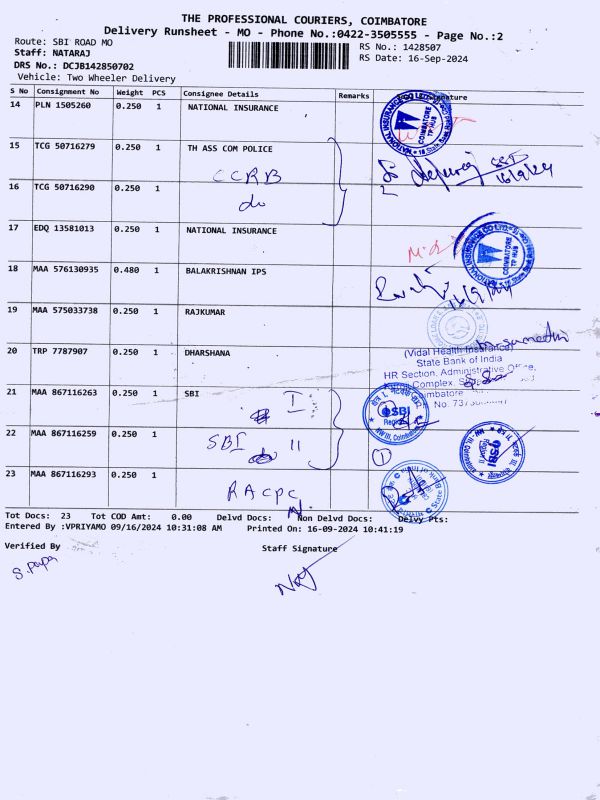 THE PROFESSIONAL COURIERS, COIMBATORE
Delivery Runsheet - MO - Phone No.:0422-3505555 - Page No.:2
Route: SBI ROAD MO
RS No.: 1428507
Staff: NATARAJ
RS Date: 16-Sep-2024
DRS No.: DCJB142850702
Vehicle: Two Wheeler Delivery
S No Consignment No Weight PCS Consignee Details Remarks
14 PLN 1505260 0.250 1 NATIONAL INSURANCE
15 TCG 50716279 0.250 1 TH ASS COM POLICE
CCRB
16/9/24
16 TCG 50716290 0.250 1
do
17 EDQ 13581013 0.250 1 NATIONAL INSURANCE
COIMBATORE
TP HUB
18 MAA 576130935 0.480 1 BALAKRISHNAN IPS
16/9/24
19 MAA 575033738 0.250 1 RAJKUMAR
20 TRP 7787907 0.250 1 DHARSHANA
(Vidal Health Insurance)
State Bank of India
HR Section, Administrative Office,
21 MAA 867116263 0.250 1 SBI
I
SBI
22 MAA 867116259 0.250 1
SBI II
1
SBI
23 MAA 867116293 0.250 1
RACPC
Tot Docs: 23 Tot COD Amt: 0.00 Delvd Docs: Non Delvd Docs: Delvy Pts:
Entered By :VPRIYAMO 09/16/2024 10:31:08 AM Printed On: 16-09-2024 10:41:19
Verified By
Staff Signature
S. Papa